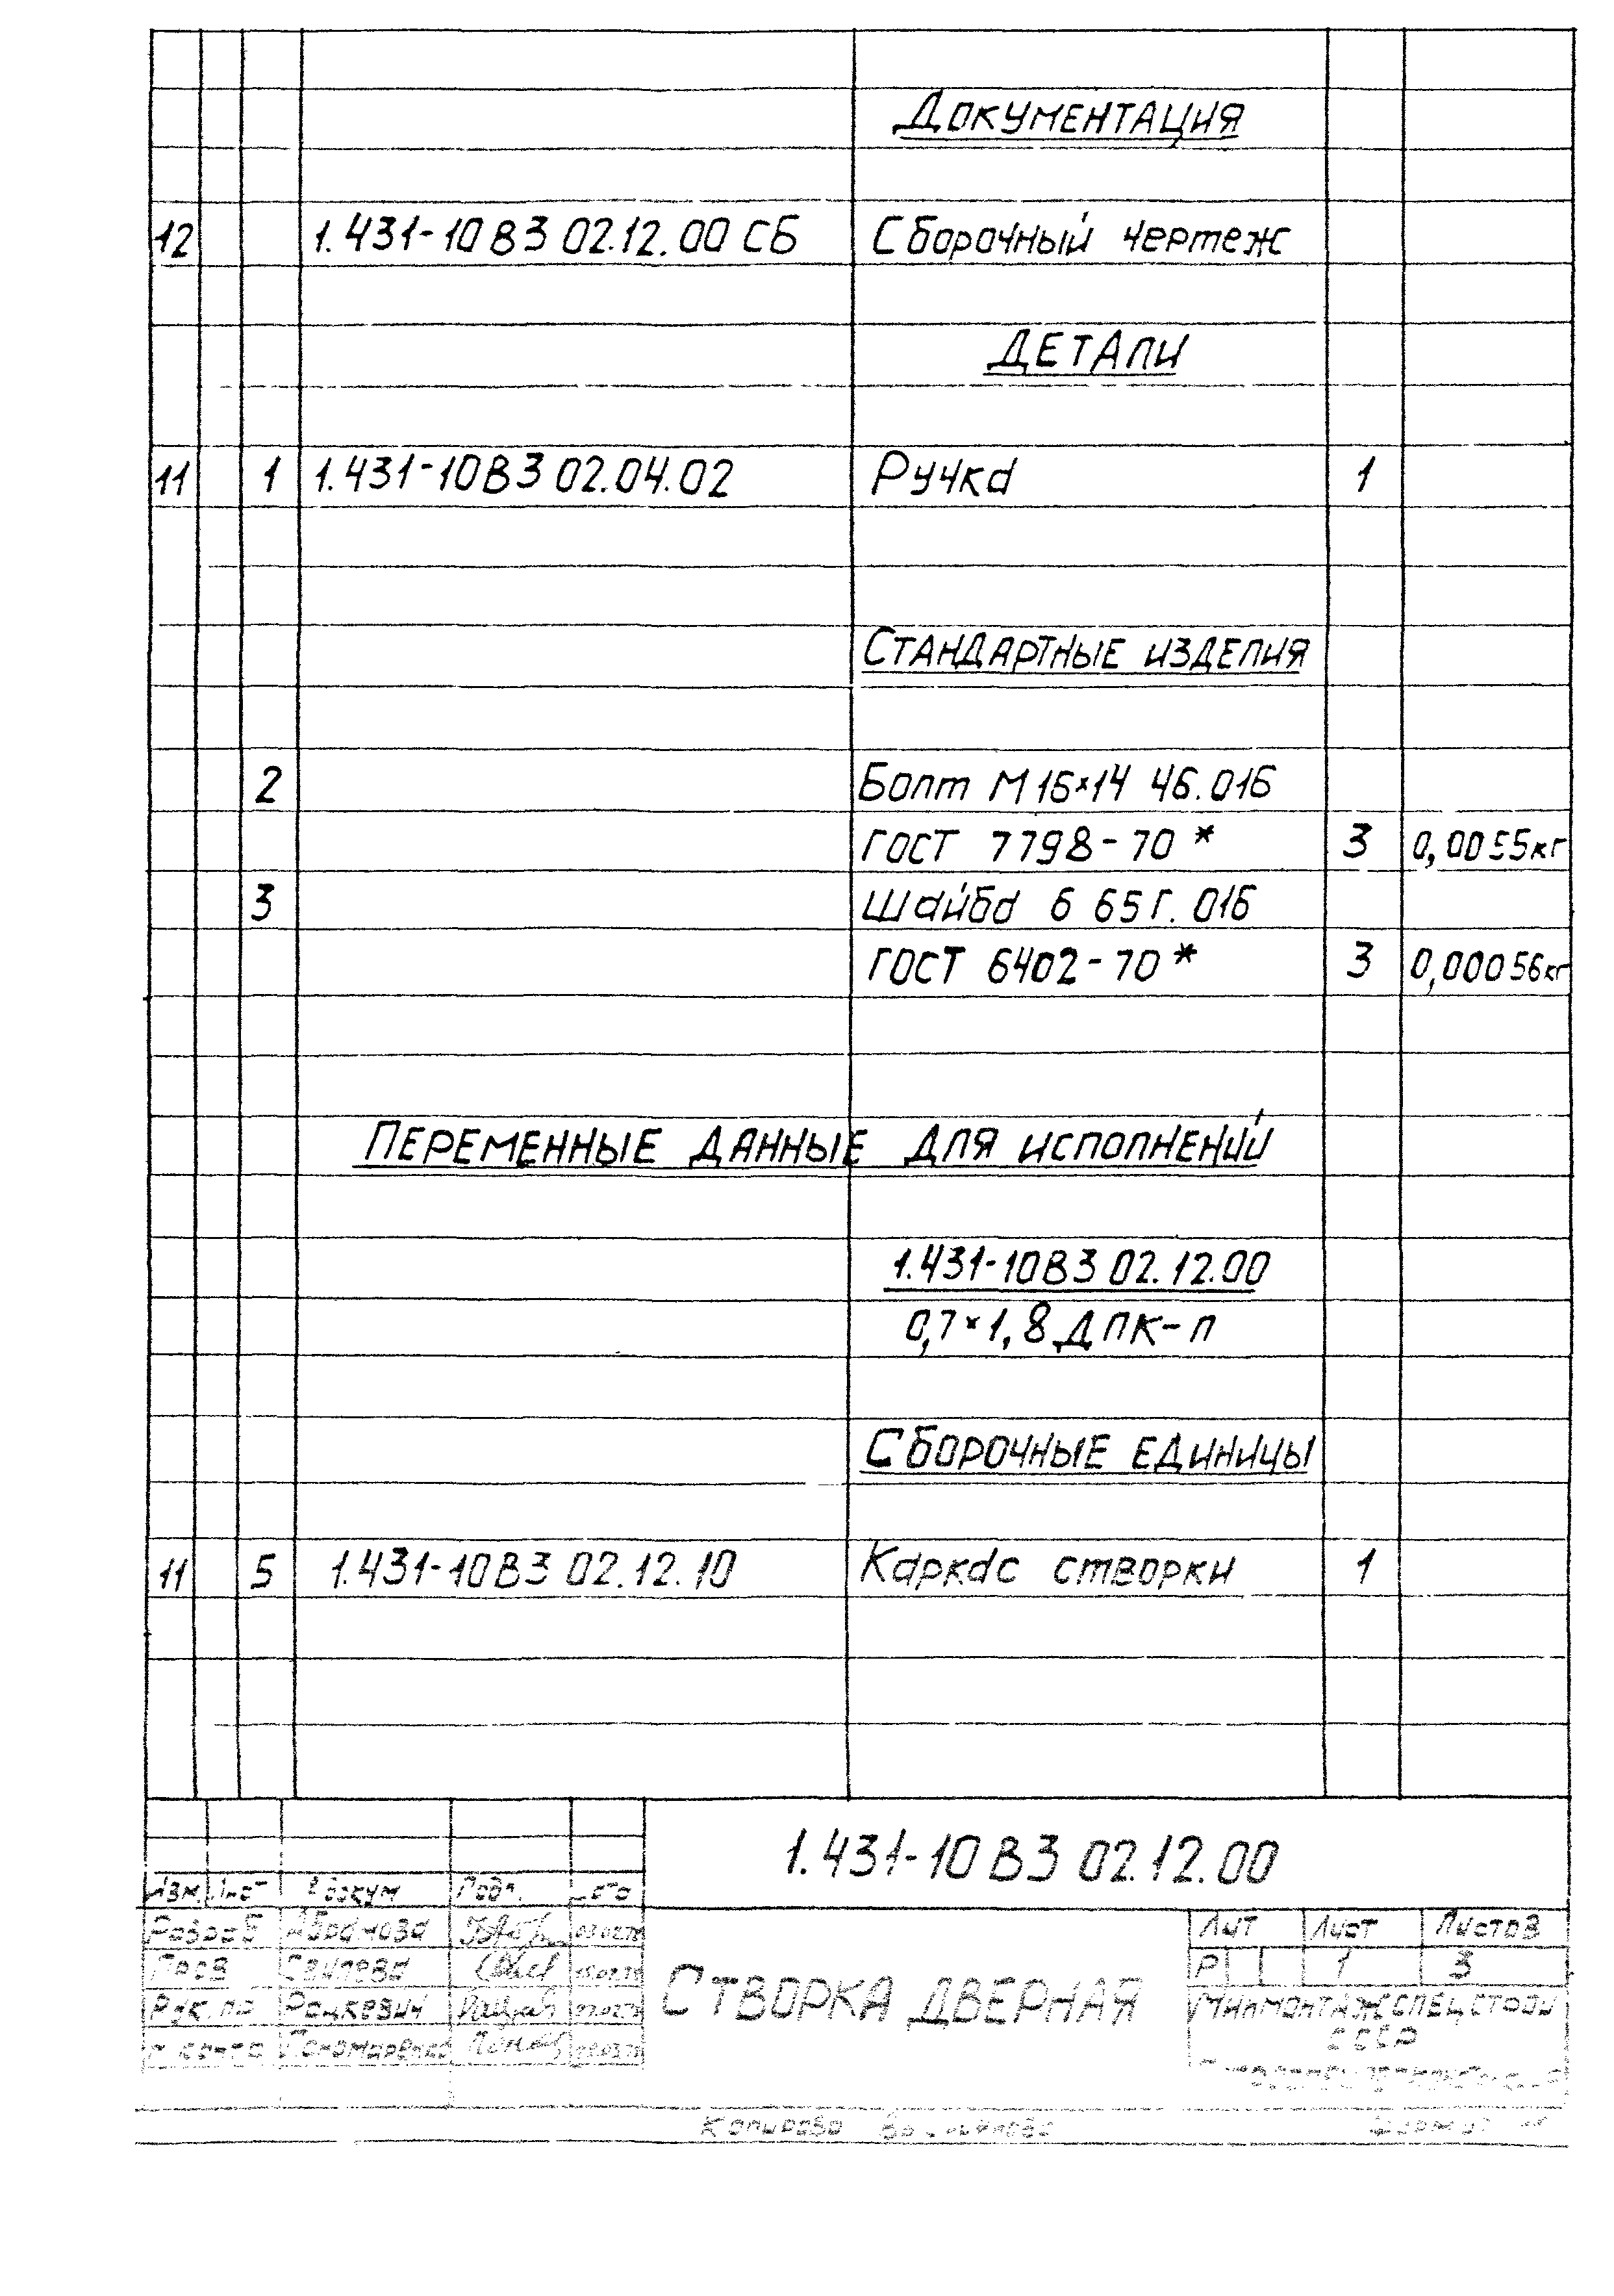 Документация
12 1.431-10 В3 02.12.00 СБ Сборочный чертеж
Детали
11 1 1.431-10 В3 02.04.02 Ручка 1
Стандартные изделия
2 Болт М16×14 46.016
ГОСТ 7798-70* 3 0,0055кг
3 Шайба 6 65Г.016
ГОСТ 6402-70* 3 0,00056кг
Переменные данные для исполнений
1.431-10 В3 02.12.00
0,7×1,8 ДПК-п
Сборочные единицы
11 5 1.431-10 В3 02.12.10 Каркас створки 1
1.431-10 В3 02.12.00
Изм. Лист докум Подп.
Разраб Абрамова
Пров
Рук. Рацкевич
Пономаренко
Створка дверная
Лит Лист Листов
Р 1 3
Минмонтажспецстрой
СССР
Копировал